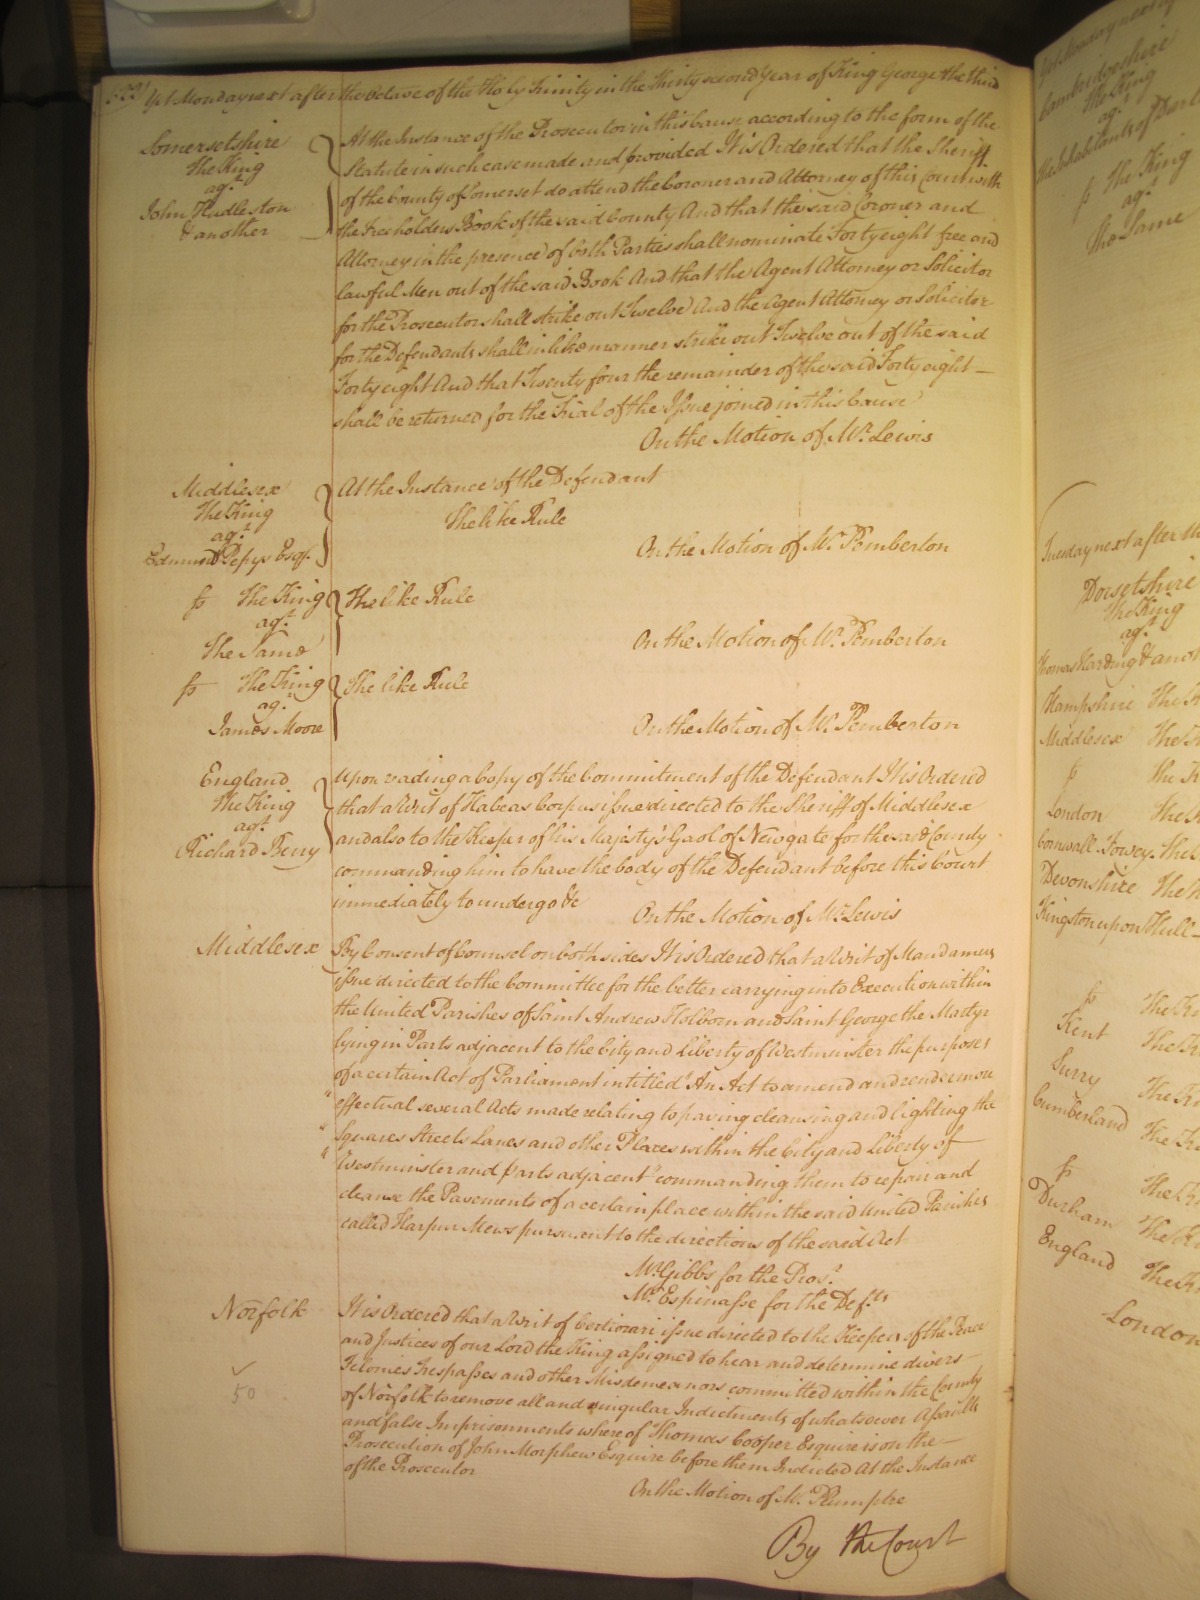 Yet Monday next after the Octave of the Holy Trinity in the Thirty second Year of King George the third
Somersetshire
The King
agt
John Hudleston
& another
At the Instance of the Prosecutor in this Cause according to the form of the
Statute in such case made and provided It is Ordered that the Sheriff
of the County of Somerset do attend the Coroner and Attorney of this Court with
the Freeholders Book of the said County And that the said Coroner and
Attorney in the presence of both Parties shall nominate Forty eight free and
lawful Men out of the said Book And that the Agent Attorney or Solicitor
for the Prosecutor shall strike out Twelve And the Agent Attorney or Solicitor
for the Defendants shall in like manner strike out Twelve out of the said
Forty eight And that Twenty four the remainder of the said Forty eight
shall be returned for the Trial of the Issue joined in this Cause
On the Motion of Mr. Lewis
Middlesex
The King
agt
Edmund Pepys Esqr.
At the Instance of the Defendant
The like Rule
On the Motion of Mr. Pemberton
The King
agt.
The Same
The like Rule
On the Motion of Mr. Pemberton
The King
agt.
James Moore
The like Rule
On the Motion of Mr. Pemberton
England
The King
agt
Richard Berry
Upon reading a Copy of the Commitment of the Defendant It is Ordered
that a Writ of Habeas Corpus issue directed to the Sheriff of Middlesex
and also to the Keeper of his Majesty's Gaol of Newgate for the said County
commanding him to have the body of the Defendant before this Court
immediately to undergo &c
On the Motion of Mr. Lewis
Middlesex
By Consent of Counsel on both sides It is Ordered that a Writ of Mandamus
issue directed to the Committee for the better carrying into Execution within
the United Parishes of Saint Andrew Holborn and Saint George the Martyr
lying in Parts adjacent to the City and Liberty of Westminster the purposes
of a certain Act of Parliament intitled "An Act to amend and render more
"effectual several Acts made relating to paving cleansing and lighting the
"Squares Streets Lanes and other Places within the City and Liberty of
"Westminster and parts adjacent" commanding them to repair and
cleanse the Pavements of a certain place within the said United Parishes
called Harpur Mews pursuant to the directions of the said Act
Mr. Gibbs for the Pros.
Mr. Espinasse for the Defts
Norfolk
50
It is Ordered that a Writ of Certiorari issue directed to the Keepers of the Peace
and Justices of our Lord the King assigned to hear and determine divers
Felonies Trespasses and other Misdemeanors committed within the County
of Norfolk to remove all and singular Indictments of whatsoever Assaults
and false Imprisonments whereof Thomas Cooper Esquire is on the
Prosecution of John Morphew Esquire before them Indicted At the Instance
of the Prosecutor
On the Motion of Mr. Plumptre
By the Court
Cambridgeshire
The King
agt
The King
agt
The Same
Tuesday next after
Dorsetshire
The King
agt
Thomas Harding &
Hampshire
Middlesex
London
Cornwall. Fowey.
Devonshire
Kingston upon Hull
Kent
Surry
Cumberland
Durham
England
London